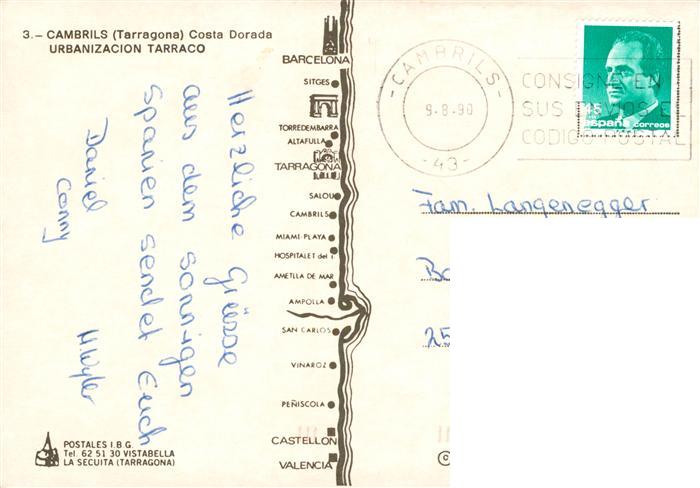 3.– CAMBRILS (Tarragona) Costa Dorada
URBANIZACION TARRACO
Herzliche Grüsse
aus dem sonnigen
Spanien sendet Euch
Daniel
Conny
H. Wyler
BARCELONA
SITGES
TORREDEMBARRA
ALTAFULLA
TARRAGONA
SALOU
CAMBRILS
MIAMI-PLAYA
HOSPITALET del I
AMETLLA DE MAR
AMPOLLA
SAN CARLOS
VINAROZ
PEÑISCOLA
CASTELLON
VALENCIA
POSTALES I.B.G.
Tel. 62 51 30 VISTABELLA
LA SECUITA (TARRAGONA)
-CAMBRILS-
9-8-90
-43-
CONSIGNE EN
SUS ENVIOS EL
CODIGO POSTAL
45
españa correos
Fam. Langenegger
Ba
25
©